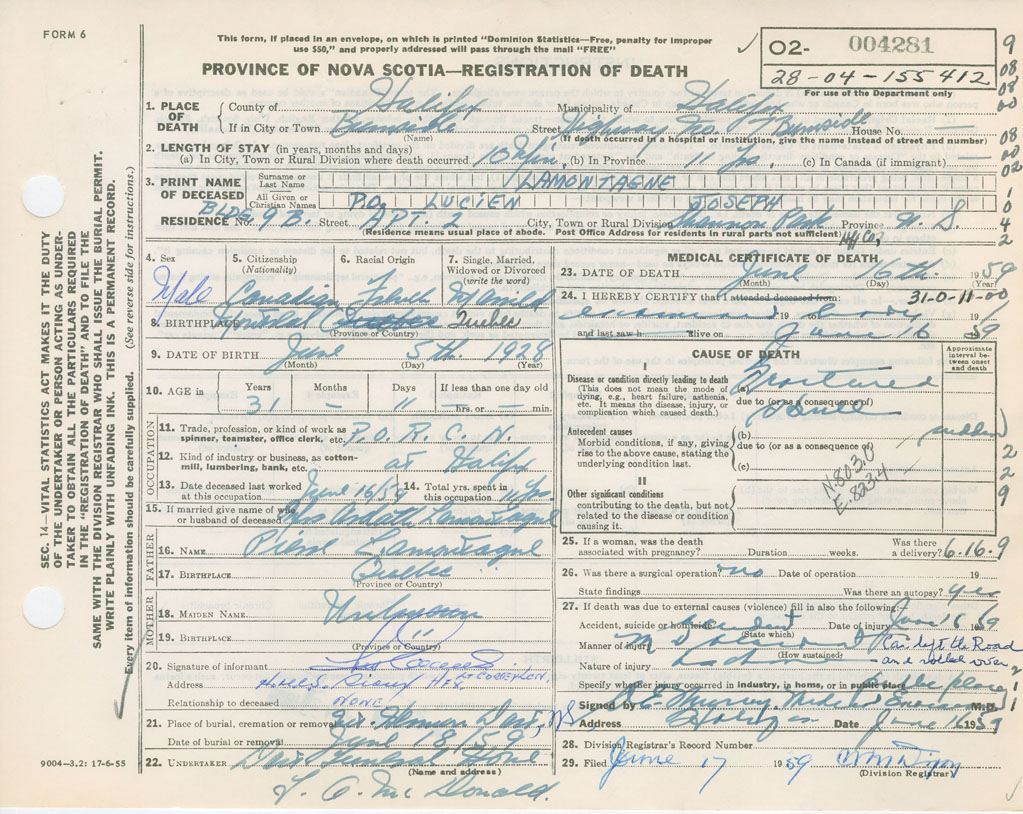 FORM 6
This form, if placed in an envelope, on which is printed "Dominion Statistics—Free, penalty for improper
use $50," and properly addressed will pass through the mail "FREE"
PROVINCE OF NOVA SCOTIA—REGISTRATION OF DEATH
O2- 004281
28-04-155412
For use of the Department only
9 08 08 00 08 00 02
1 0 4 2
1. PLACE OF DEATH
County of Halifax Municipality of Halifax
If in City or Town Burnside Street Highway No. 7 Burnside House No. —
(Name) (If death occurred in a hospital or institution, give the name instead of street and number)
2. LENGTH OF STAY (in years, months and days)
(a) In City, Town or Rural Division where death occurred. 10 Min, (b) In Province 11 Yrs. (c) In Canada (if immigrant) —
3. PRINT NAME OF DECEASED
Surname or Last Name LAMONTAGNE
All Given or Christian Names P.O. LUCIEN JOSEPH
RESIDENCE No. BLDG. 9B. Street APT. 2 City, Town or Rural Division Shannon Park Province N.S.
(Residence means usual place of abode. Post Office Address for residents in rural parts not sufficient) Hfx Co.
4. Sex Male
5. Citizenship (Nationality) Canadian
6. Racial Origin French
7. Single, Married, Widowed or Divorced (write the word) Married
8. BIRTHPLACE Montreal Quebec
(Province or Country)
9. DATE OF BIRTH June 5th. 1928
(Month) (Day) (Year)
10. AGE in Years Months Days If less than one day old
31 — 11 hrs. or — min.
OCCUPATION
11. Trade, profession, or kind of work as spinner, teamster, office clerk, etc. P.O. R.C.N.
12. Kind of industry or business, as cotton-mill, lumbering, bank, etc. at Halifax
13. Date deceased last worked at this occupation June 16/59 14. Total yrs. spent in this occupation 11 Yrs
15. If married give name of wife or husband of deceased Mrs Lamontagne
FATHER
16. NAME Pierre Lamontagne
17. BIRTHPLACE Quebec
(Province or Country)
MOTHER
18. MAIDEN NAME Unknown
19. BIRTHPLACE "
(Province or Country)
20. Signature of informant
Address
Relationship to deceased NONE
21. Place of burial, cremation or removal NS
Date of burial or removal June 18, 59
22. UNDERTAKER Funeral Home
(Name and address)
L. A. McDonald.
MEDICAL CERTIFICATE OF DEATH
23. DATE OF DEATH June 16th. 1959
(Month) (Day) (Year)
24. I HEREBY CERTIFY that I attended deceased from: 31-0-11-00
examined 19 to body 19
and last saw h alive on June 16 59
CAUSE OF DEATH
Approximate interval between onset and death
I
Disease or condition directly leading to death
(This does not mean the mode of dying, e.g., heart failure, asthenia, etc. It means the disease, injury, or complication which caused death.)
(a) Fractured
due to (or as a consequence of)
Skull
Antecedent causes
Morbid conditions, if any, giving rise to the above cause, stating the underlying condition last.
(b) sudden
due to (or as a consequence of)
(c)
N803.0
E823.4
II
Other significant conditions
contributing to the death, but not related to the disease or condition causing it.
2 2 9
25. If a woman, was the death associated with pregnancy? Duration weeks. Was there a delivery? 6.16.9
26. Was there a surgical operation? no Date of operation 19
State findings Was there an autopsy? yes
27. If death was due to external causes (violence) fill in also the following:
Accident, suicide or homicide Accident Date of injury June 16 1959
(State which)
Manner of injury Car left the Road
(How sustained) and rolled over
Nature of injury
Specify whether injury occurred in industry, in home, or in public place Public place
Signed by Medical Examiner M.D.
Address Halifax Date June 16 1959
28. Division Registrar's Record Number
29. Filed June 17 1959
(Division Registrar)
2 1 1
9004—3.2: 17-6-55
SEC. 14—VITAL STATISTICS ACT MAKES IT THE DUTY
OF THE UNDERTAKER OR PERSON ACTING AS UNDER-
TAKER TO OBTAIN ALL THE PARTICULARS REQUIRED
IN THE "REGISTRATION OF DEATH" AND TO FILE THE
SAME WITH THE DIVISION REGISTRAR WHO SHALL ISSUE THE BURIAL PERMIT.
WRITE PLAINLY WITH UNFADING INK. THIS IS A PERMANENT RECORD.
Every item of information should be carefully supplied. (See reverse side for instructions.)